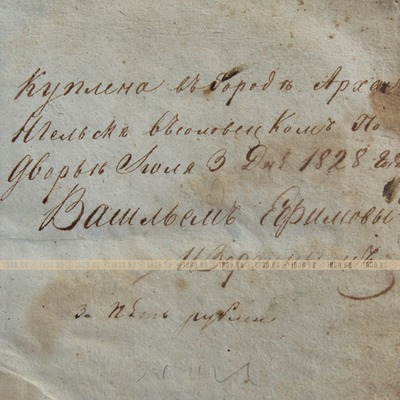 Куплена въ Городѣ Арха
Нгельскѣ въсоловецкомъ По
Дворьѣ Іюля 3 Дня 1828 го
Васильемъ Ефимовы
за пѣть рублей